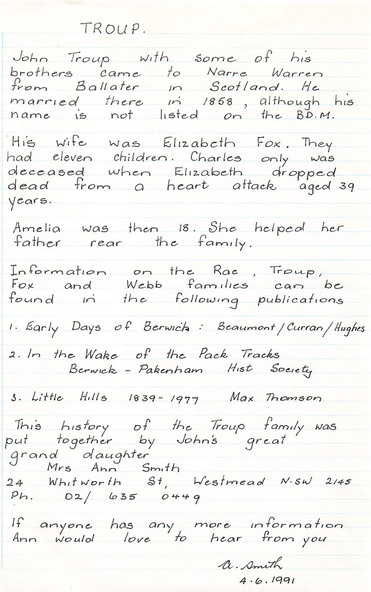 TROUP.
John Troup with some of his
brothers came to Narre Warren
from Ballater in Scotland. He
married there in 1868, although his
name is not listed on the BD.M.
His wife was Elizabeth Fox. They
had eleven children. Charles only was
deceased when Elizabeth dropped
dead from a heart attack aged 39
years.
Amelia was then 18. She helped her
father rear the family.
Information on the Rae, Troup,
Fox and Webb families can be
found in the following publications
1. Early Days of Berwick : Beaumont/Curran/Hughes
2. In the Wake of the Pack Tracks
Berwick - Pakenham Hist Society
3. Little Hills 1839-1977 Max Thomson
This history of the Troup family was
put together by John's great
grand daughter
Mrs Ann Smith
24 Whitworth St, Westmead N.SW 2145
Ph. 02/ 635 0449
If anyone has any more information
Ann would love to hear from you
A. Smith
4.6.1991